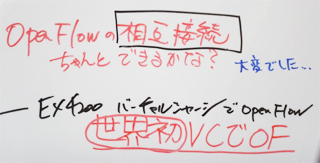 OpenFlowの相互接続
ちゃんとできるかな?
大変でした...
― EX4200 バーチャルシャーシでOpenFlow
世界初 VCでOF